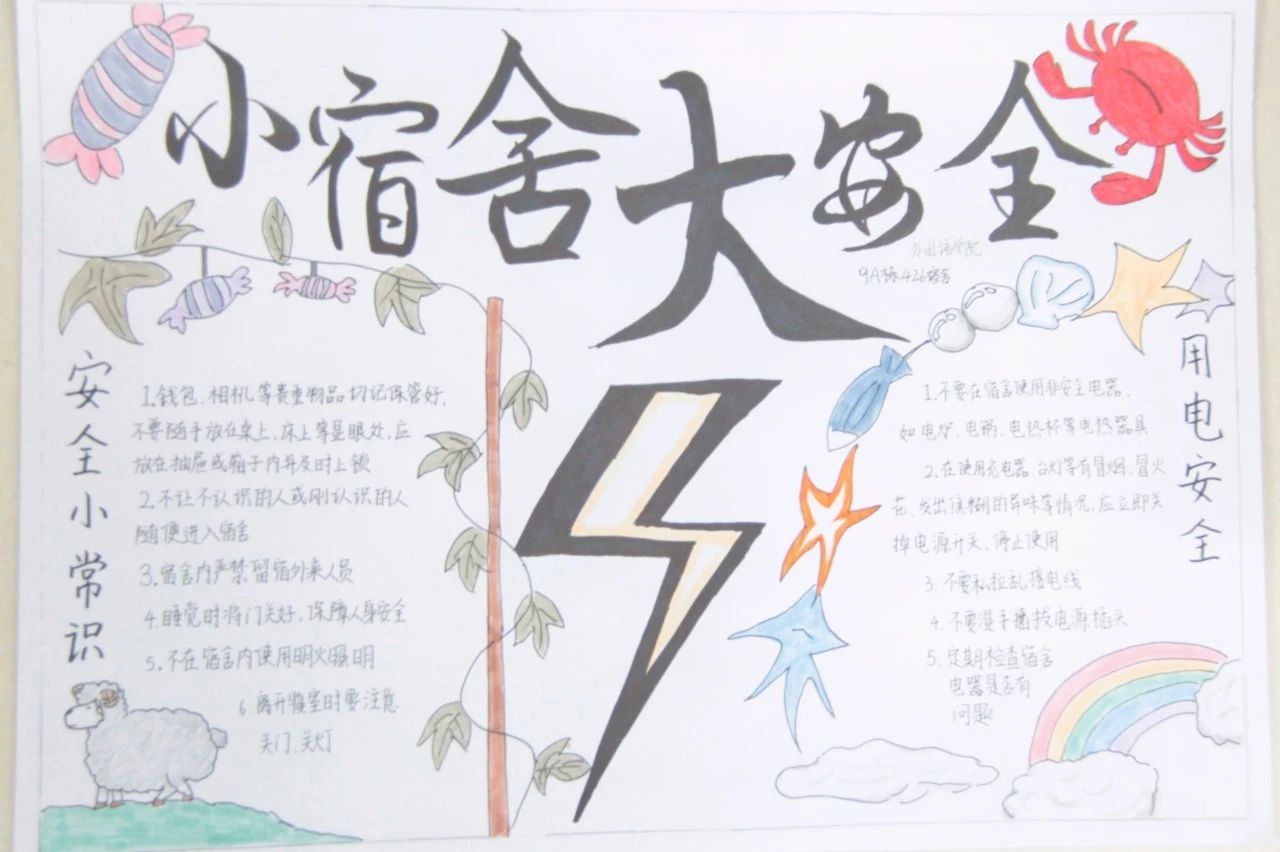 小宿舍大安全
外国语学院
9A栋426宿舍
安全小常识
1.钱包、相机等贵重物品切记保管好,
不要随手放在桌上、床上等显眼处,应
放在抽屉或箱子内并及时上锁
2.不让不认识的人或刚认识的人
随便进入宿舍
3.宿舍内严禁留宿外来人员
4.睡觉时将门关好,保障人身安全
5.不在宿舍内使用明火照明
6.离开寝室时要注意
关门、关灯
用电安全
1.不要在宿舍使用非安全电器,
如电炉、电锅、电热杯等电热器具
2.在使用充电器、台灯等有冒烟、冒火
花、发出焦糊的异味等情况,应立即关
掉电源开关、停止使用
3.不要私拉乱接电线
4.不要湿手插拔电源插头
5.定期检查宿舍
电器是否有
问题